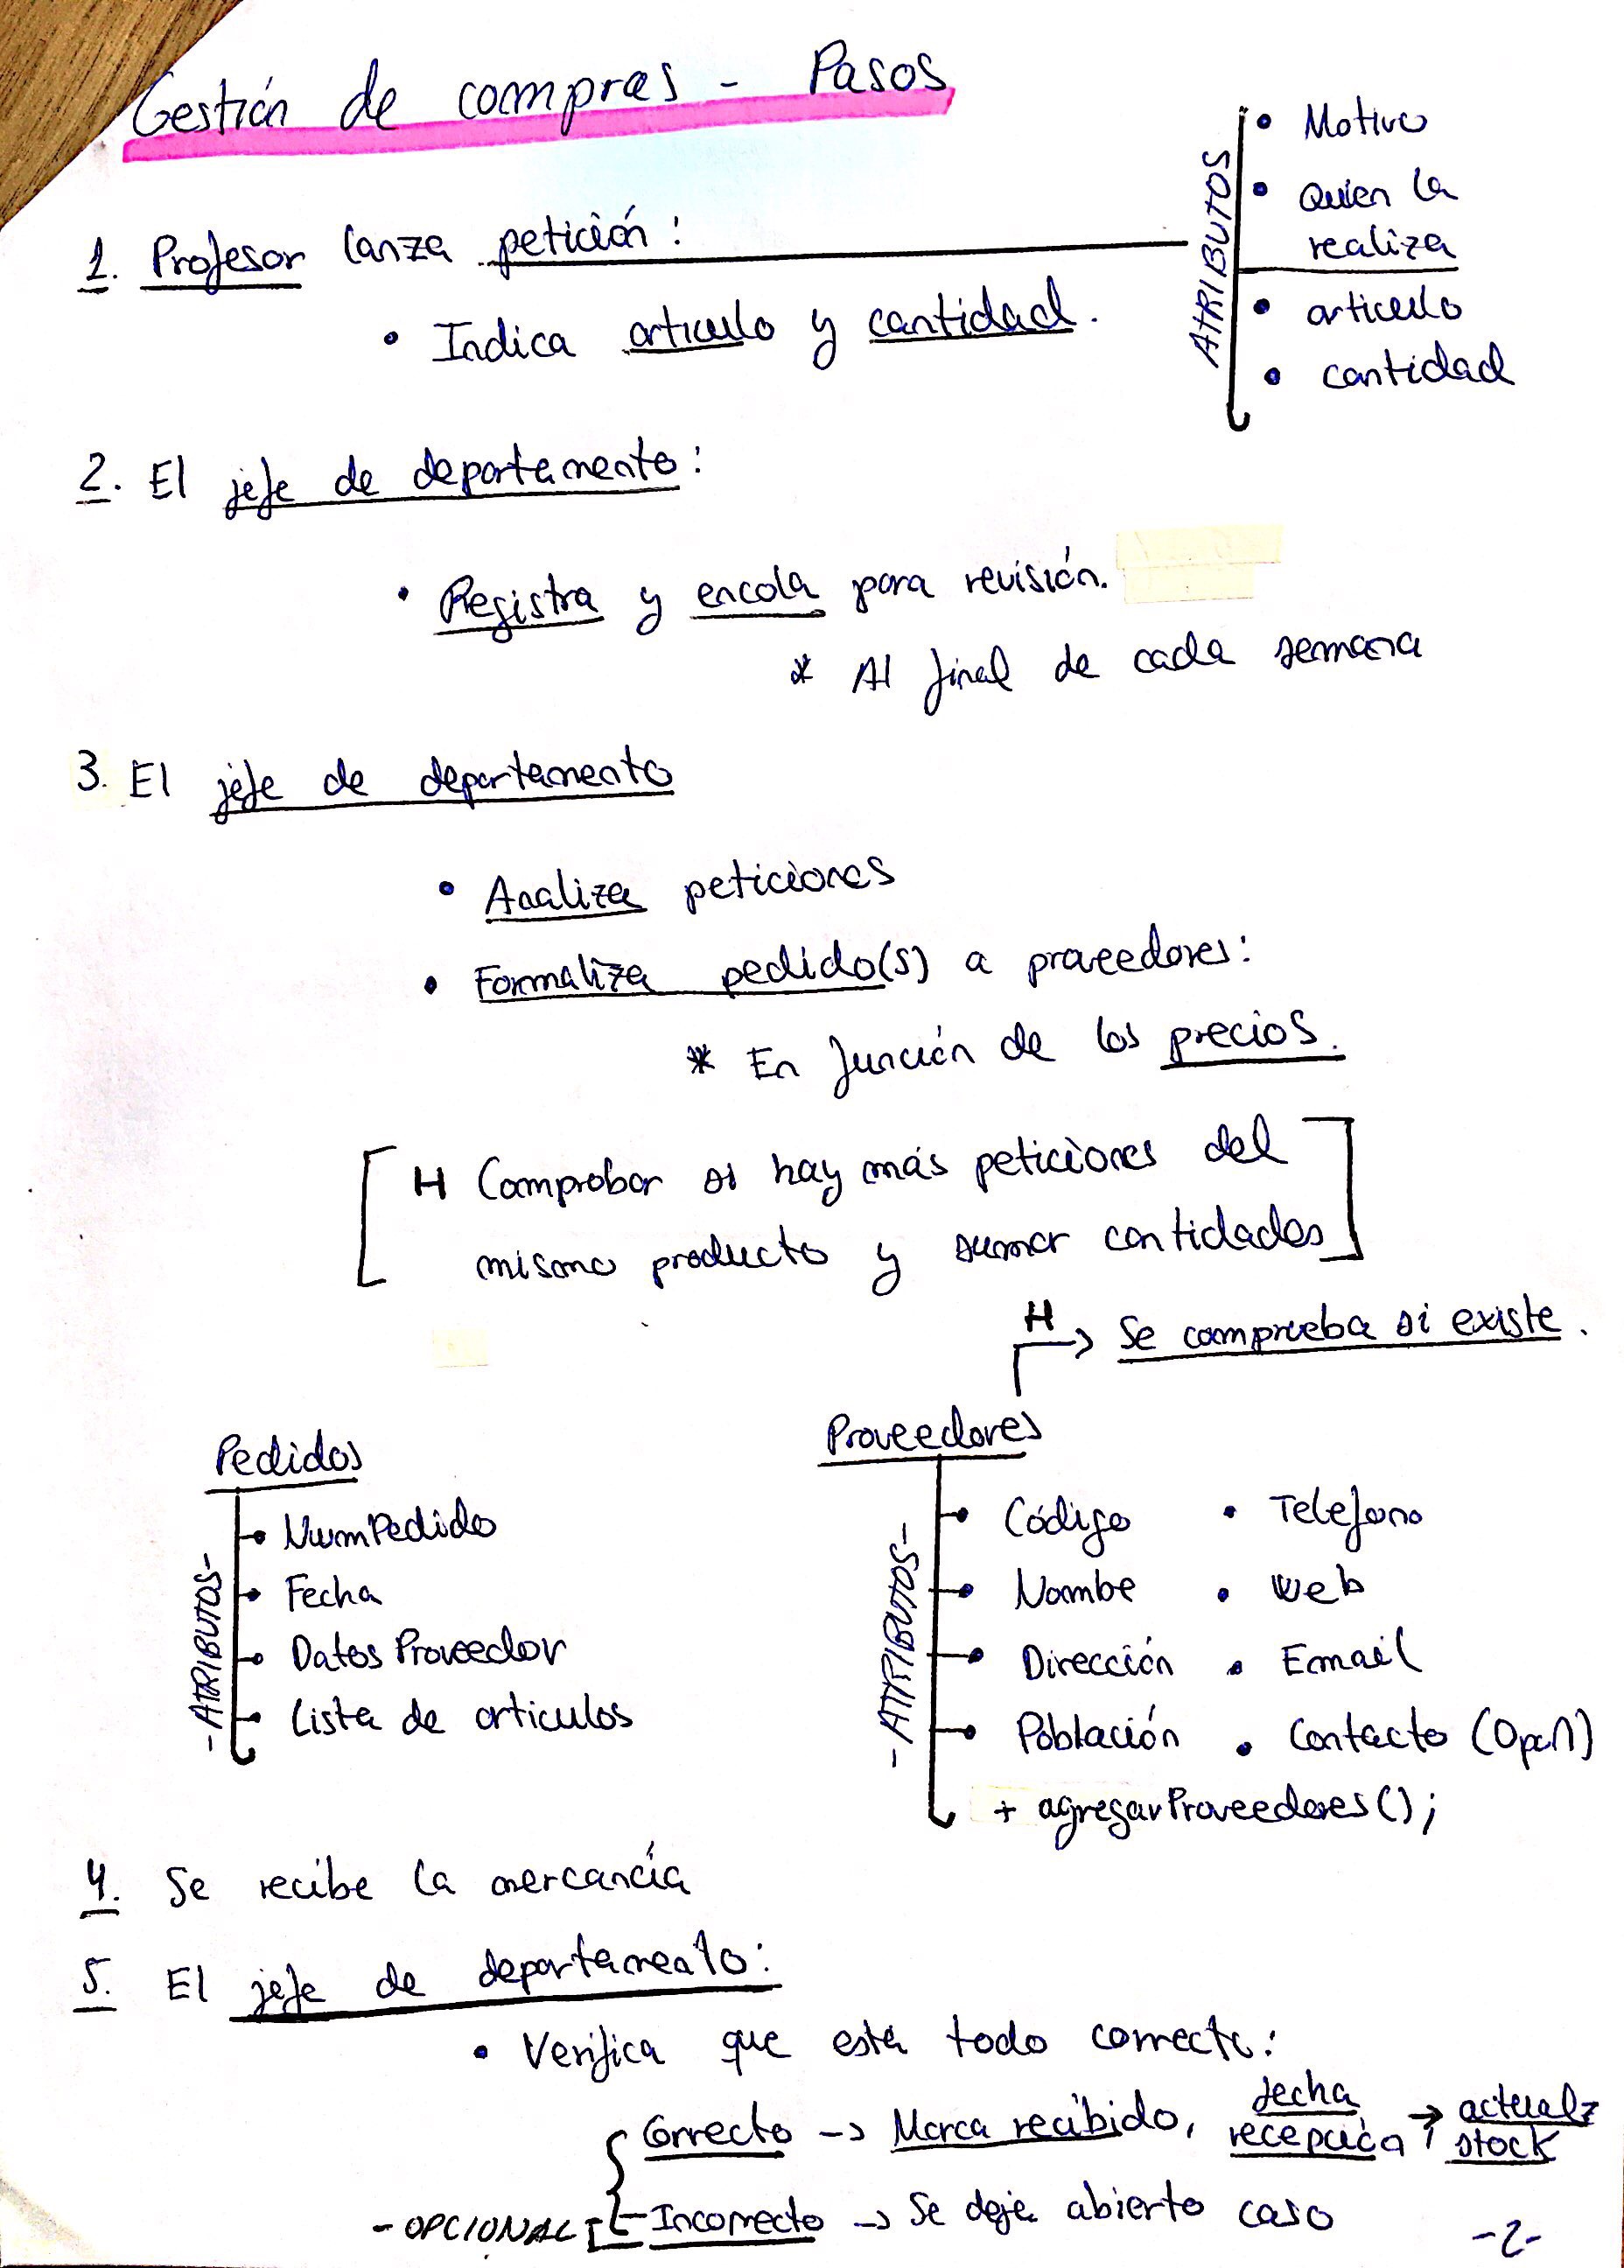 Gestión de compras - Pasos
1. Profesor lanza petición:
• Indica articulo y cantidad.
ATRIBUTOS
• Motivo
• Quien la
realiza
• articulo
• cantidad
2. El jefe de departamento:
• Registra y encola para revisión.
* Al final de cada semana
3. El jefe de departamento
• Analiza peticiones
• Formaliza pedido(s) a proveedores:
* En función de los precios.
[ H Comprobar si hay más peticiones del
mismo producto y sumar cantidades ]
H → Se comprueba si existe.
Pedidos
-ATRIBUTOS-
• NumPedido
• Fecha
• Datos Proveedor
• Lista de articulos
Proveedores
-ATRIBUTOS-
• Código • Telefono
• Nombe • Web
• Dirección • Email
• Población • Contacto (Opcn)
+ agregarProveedores();
4. Se recibe la mercancía
5. El jefe de departamento:
• Verifica que está todo correcto:
Correcto -> Marca recibido, fecha recepción → actualz stock
-OPCIONAL [ Incorrecto -> Se deja abierto caso
-2-